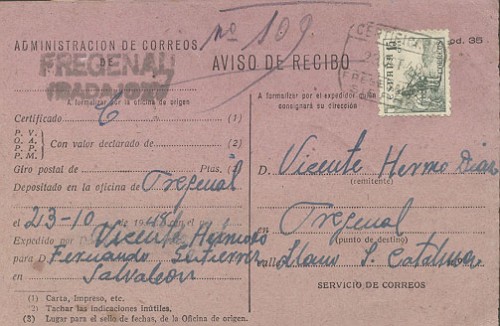 nº 109
ADMINISTRACION DE CORREOS
DE
FREGENAL
(BADAJOZ)
AVISO DE RECIBO
od. 35
CERTIFICA
ESPAÑA
A formalizar por la oficina de origen
A formalizar por el expedidor que
consignará su dirección
Certificado (1)
P. V.
O. A.
P. P.
P. M.
Con valor declarado de (2)
Giro postal de Ptas. (3)
Depositado en la oficina de Fregenal
el 23-10 de 1948 con el
Expedido por Vicente Hermoso
para D. Fernando Gutierrez
Salvaleon
D. Vicente Hermo Diaz
(remitente)
en Fregenal
(punto de destino)
calle Llano S. Catalina
SERVICIO DE CORREOS
(1) Carta, Impreso, etc.
(2) Tachar las indicaciones inútiles,
(3) Lugar para el sello de fechas, de la Oficina de origen.